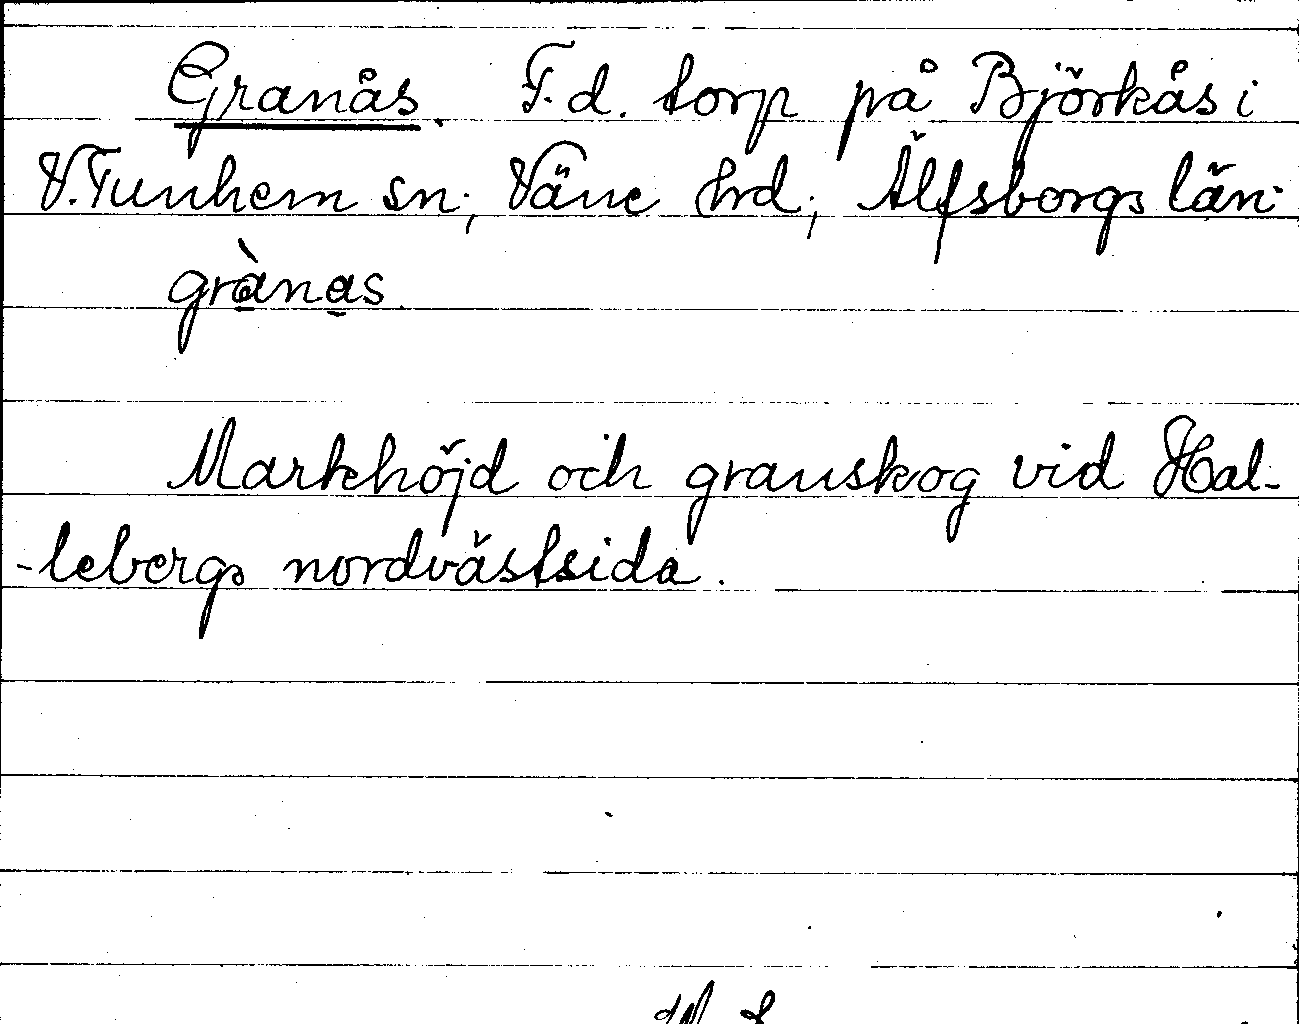 Granås. F.d. torp på Björkås i
V.Tunhem sn; Väne hrd; Älfsborgs län.
grànas.
Markhöjd och granskog vid Hal-
-lebergs nordvästsida.